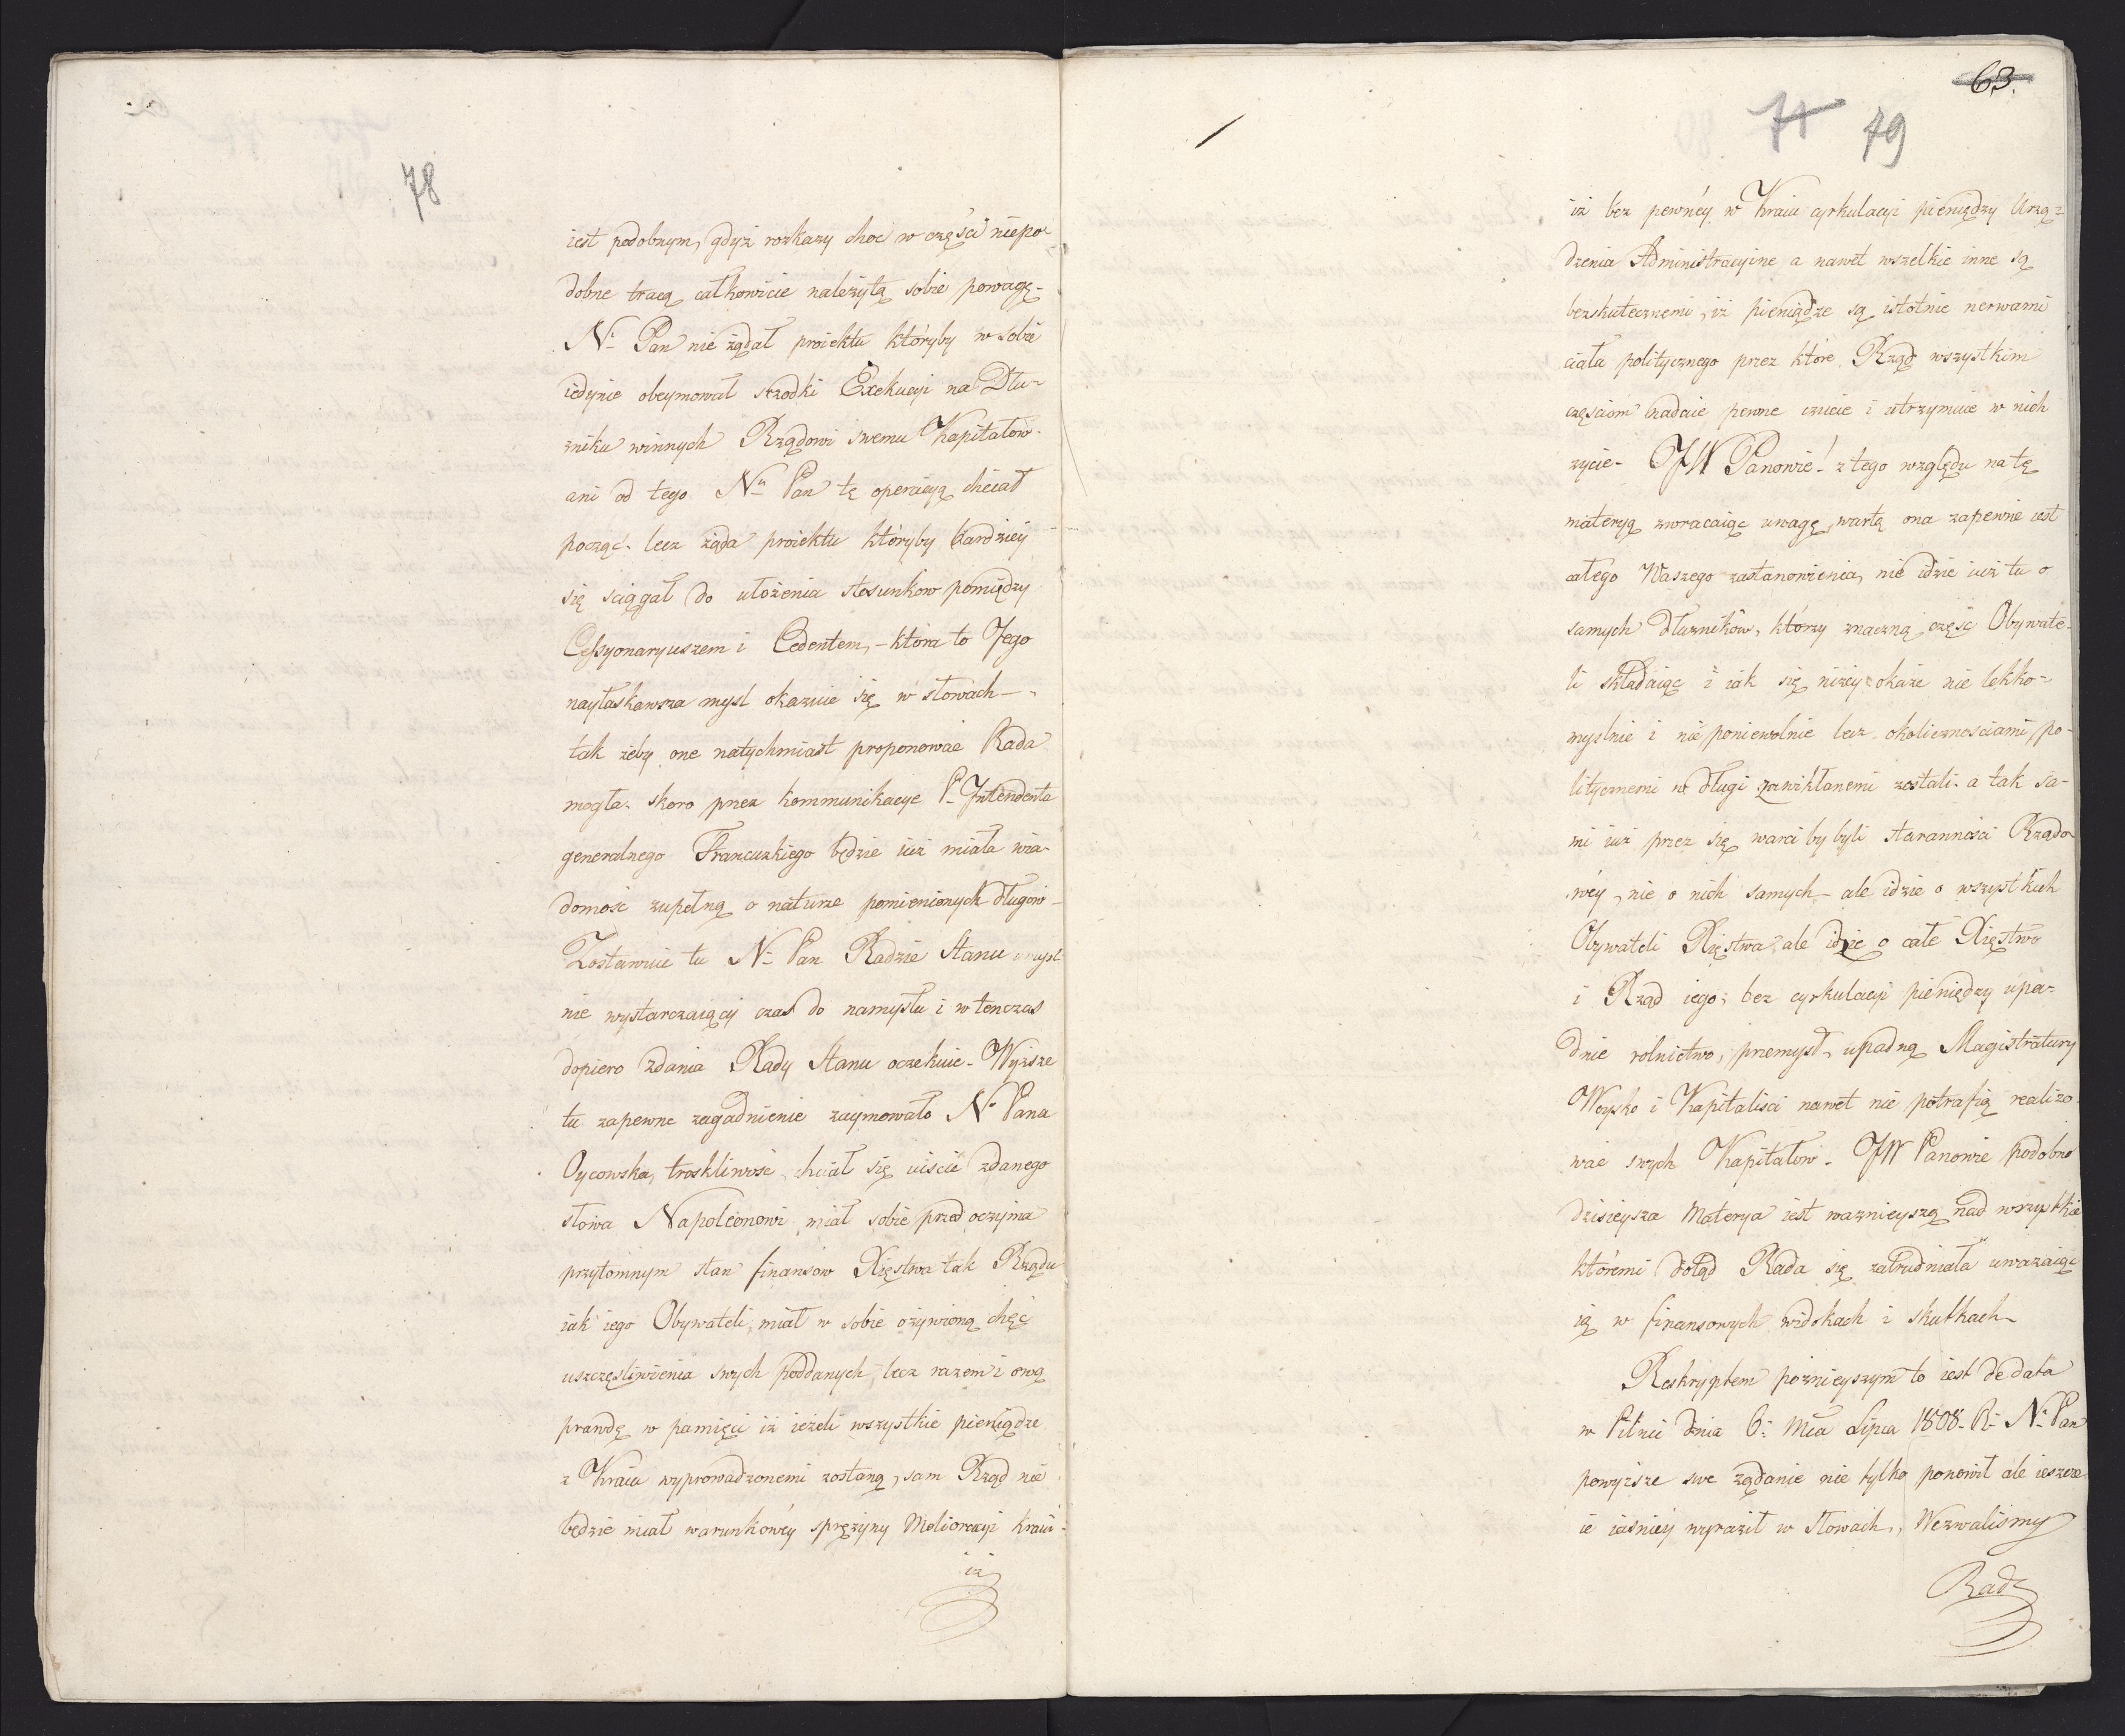 78
iest podobnym, gdyż rozkazy choc w częśći niepo-
dobne tracą całkowicie należytą sobie powagę-
N: Pan nie żądał proiektu któryby w sobie
iedynie obeymował srzodki Exekucyi na Dłu-
zniku winnych Rządowi swemu Kapitałow-
ani od tego Nu Pan tę operacyą chciał
począć- lecz żąda proiektu któryby bardziey
się sciągał do ułożenia stosunkow pomiędzy
Cessyonaryuszem i Cedentem,- która to Jego
nayłaskawsza mysl okazuie się w słowach-„
tak żeby one natychmiast proponować Rada
mogła. skoro przez kommunikacye P- Intendenta
generalnego Francuzkiego będzie iuż miała wia-
domość zupełną o naturze pomienionych długow-
Zostawuie tu N: Pan Radzie Stanu umysl-
nie wystarczaiący czas do namysłu i wtenczas
dopiero zdania Rady Stanu oczekuie- Wyższe
tu zapewne zagadnienie zaymowało N: Pana
Oycowską troskliwość, chciał się uiścić zdanego
słowa Napoleonowi miał sobie przed oczyma
przytomnym stan finansow Xięstwa tak Rządu
iak iego Obywateli, miał w sobie ożywioną chęć
uszczęsliwienia swych poddanych, lecz razem i ową
prawdę w pamięci iż ieżeli wszystkie pieniądze
z Kraiu wyprowadzonemi zostaną, sam Rząd nie
będzie miał warunkowey sprężyny Melioracyi Kraiu-
iż
63.
71
79
iż bez pewnéy w Kraiu cyrkulacyi pieniędzy Urzą-
dzenia Administracyine a nawet wszelkie inne są
bezskutecznemi, iż pieniądze są istotnie nerwami
ciała politycznego przez które Rząd wszystkim
częsciom nadaie pewne czucie i utrzymuie w nich
zycie- JW Panowie! z tego względu na tę
materyą zwracaiąc uwagę, wartą ona zapewnie iest
całego Waszego zastanowienia, nie idzie iuż tu o
samych Dłużnikow, którzy znaczną część Obywate-
li składaiąc i iak się niżey okaże nie lekko-
myslnie i nie poniewolnie lecz okolicznosciami po-
litycznemi w długi zawikłanemi zostali- a tak sa-
mi iuż przez się warci by byli starannosci Rządo-
wéy, nie o nich samych- ale idzie o wszystkich
Obywateli Xięstwa, ale idzie o całe Xięstwo
i Rząd iego; bez cyrkulacyi pieniędzy upa-
dnie rolnictwo, przemysł, upadną Magistratury
Woysko i Kapitaliści nawet nie potrafią realizo-
wać swych Kapitałow- JW Panowie podobno
dzisieysza Materya iest ważnieyszą nad wszystkie
któremi dotąd Rada się zatrudniała uważaiąc
ią w finansowych widokach i skutkach-
Reskryptem poźnieyszym to iest de data
w Pilnic dnia 6: Mca Lipca 1808- R: N: Pan
powyższe swe żądanie nie tylko ponowił ale ieszcze
ie iaśniéy wyraził w słowach„ Wezwalismy
Radę